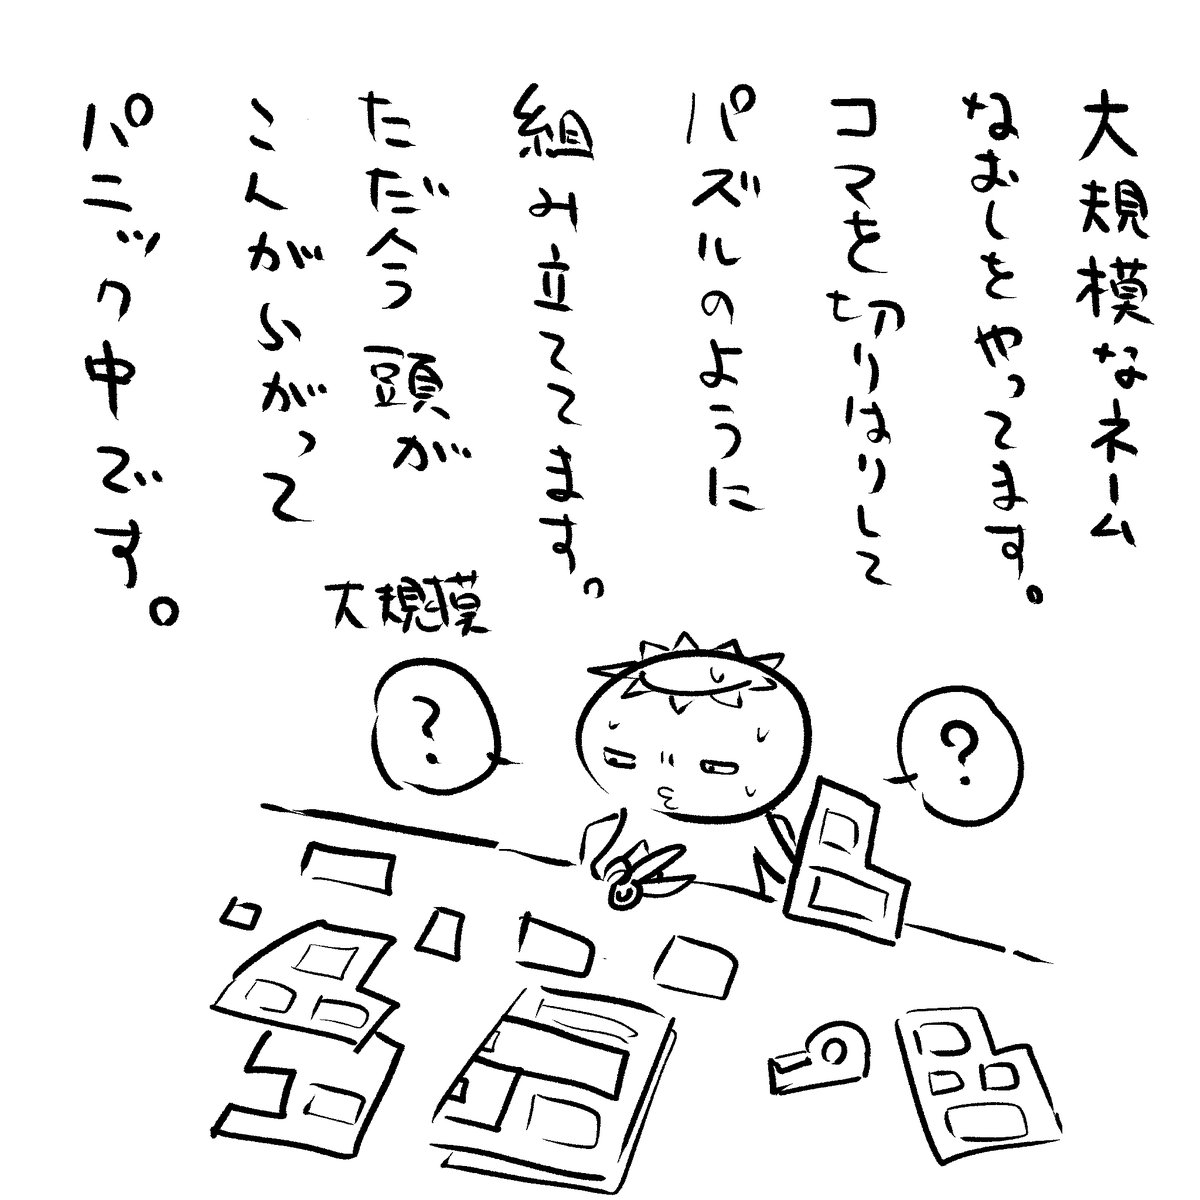 大規模なネーム
なおしをやってます。
コマを切りはりして
パズルのように
組み立ててます。
ただ今頭が
こんがらがって
パニック中です。
大規模
?
?